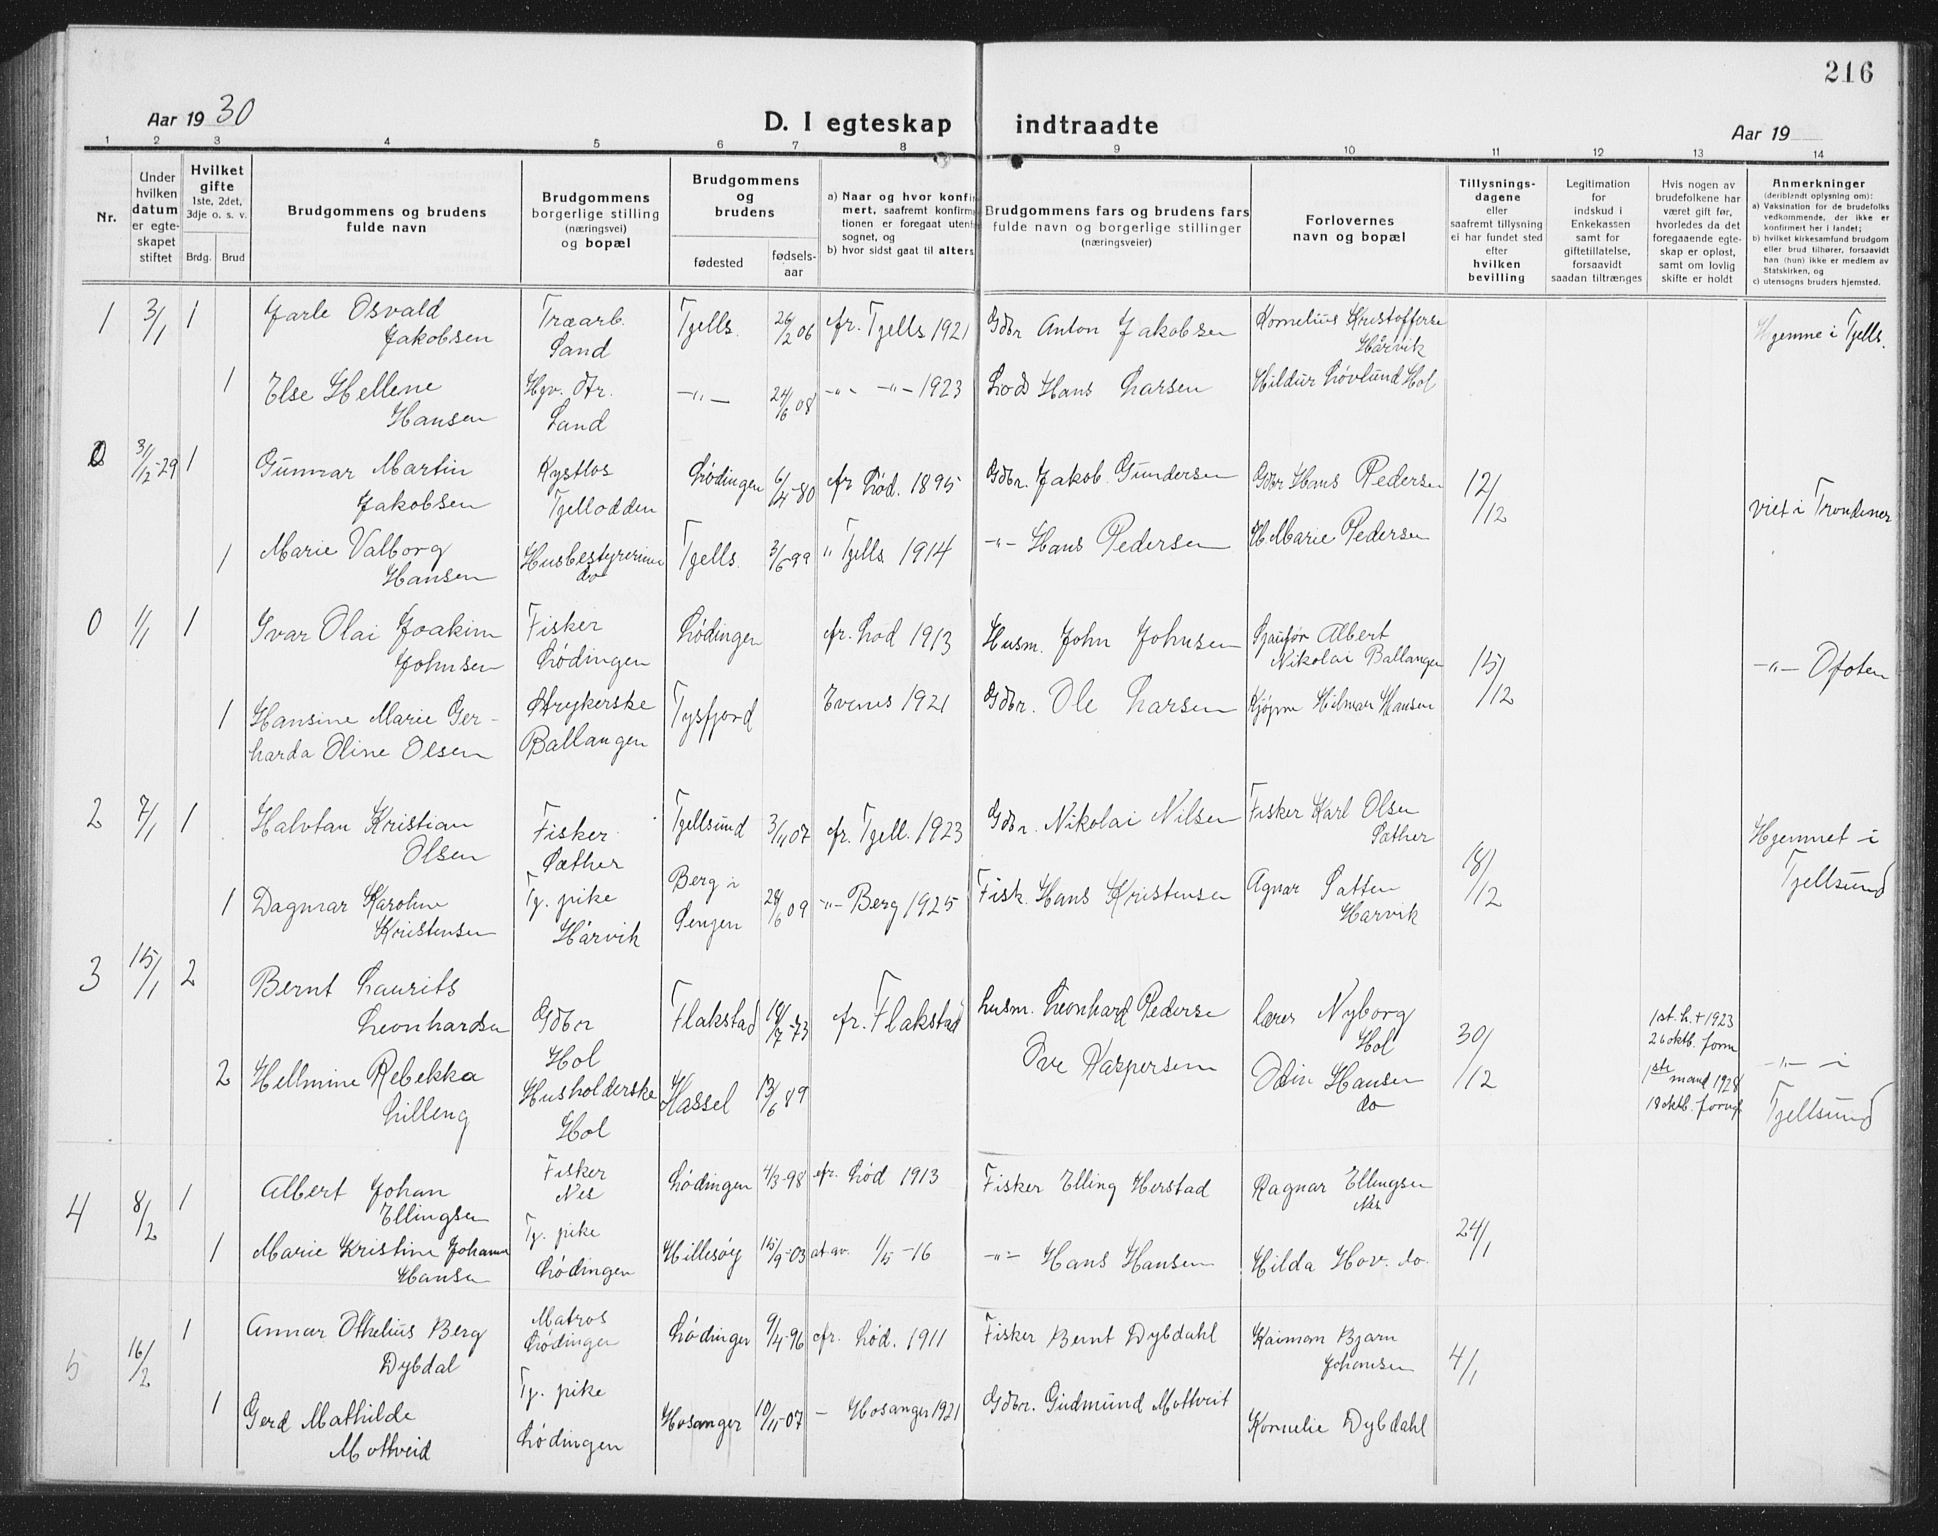 216
Aar 1930
D. I egteskap indtraadte
Aar 19
1 2 3 4 5 6 7 8 9 10 11 12 13 14
Nr.
Under hvilken datum er egteskapet stiftet
Hvilket gifte 1ste, 2det, 3dje o. s. v.
Brdg. Brud
Brudgommens og brudens fulde navn
Brudgommens borgerlige stilling (næringsvei) og bopæl
Brudgommens og brudens
fødested
fødselsaar
a) Naar og hvor konfirmert, saafremt konfirmtionen er foregaat utenfsognet, og
b) hvor sidst gaat til alters
Brudgommens fars og brudens fars fulde navn og borgerlige stillinger (næringsveier)
Forlovernes navn og bopæl
Tillysningsdagene eller saafremt tillysning ei har fundet sted efter hvilken bevilling
Legitimation for indskud i Enkekassen samt for giftetillatelse, forsaavidt saadan tiltrænges
Hvis nogen av brudefolkene har været gift før, hvorledes da det foregaaende egteskap er opløst, samt om lovlig skifte er holdt
Anmerkninger (deriblandt oplysning om):
a) Vaksination for de brudefolks vedkommende, der ikke er konfirmert her i landet;
b) hvilket kirkesamfund brudgom eller brud tilhører, forsaavidt han (hun) ikke er medlem av Statskirken, og
c) utensogns bruders hjemsted.
1 3/1 1 Jarle Osvald Jakobsen Træarb. Sand Tjells. 26/2 06 kfr. Tjells 1921 Gdbr Anton Jakobsen Kornelius Kristofferse Hårvik Hjemme i Tjells.
1 Else Hellene Hansen Sand -"- 24/6 08 -"- -"- 1923 Lods Hans Larsen Hildur Løvlund Hol
0 31/12-29 1 Gunnar Martin Jakobsen Tjellodden Lødingen 6/4-80 kfr Lød. 1895 Gdbr. Jakob Gundersen Gdbr Hans Pedersen 12/12 viet i Trondenes
1 Marie Valborg Hansen Husbestyrerinne do Tjells. 3/6 99 " Tjells 1914 -"- Hans Pedersen H. Marie Pedersen
0 1/1 1 Ivar Olai Joakim Johnsen Fisker Lødingen Lødingen kfr. Lød 1913 Husm. John Johnsen Sjaufør Albert Nikolai Ballangen 15/12 -"- Ofoten
1 Hansine Marie Gerharda Oline Olsen Strykerske Ballangen Tysfjord Evenes 1921 Gdbr. Ole Larsen Hilmar Hansen
2 7/1 1 Halvtan Kristian Olsen Fisker Sæther Tjellsund 3/11 07 kfr. Tjell. 1923 Gdbr. Nikolai Nilsen Fisker Karl Olsen Sæther 18/12 Hjemmet i Tjellsund
1 Dagmar Karoline Kristensen Tj. pike Hårvik Berg i Senjen 28/6 09 -"- Berg 1925 Fisk. Hans Kristensen Agnar Sætten Hårvik
3 15/1 2 Bernt Laurits Leonhardsen Gdbr Hol Flakstad 18/7-73 kfr. Flakstad husm. Leonhard Pederse lærer Nyborg Hol 30/12 1st. h. + 1923 26 oktb. form -"- i Tjellsund
2 Hellmine Rebekka Lilleng Husholderske Hol Hassel 13/6 89 Ove Kaspersen Odin Hansen do 1ste mand 1928 18 oktb. forng
4 8/2 1 Albert Johan Ellingsen Fisker Nes Lødingen 4/3-98 kfr. Lød 1913 Fisker Elling Herstad Ragnar Ellingsen Nes 24/1
1 Marie Kristine Johanne Hansen Tj. pike Lødingen Hillesøy 15/9-03 at av. 1/5-16 -"- Hans Hansen Hilda Hov. do.
5 16/2 1 Annar Othelius Berg Dybdal Matros Lødingen Lødingen 9/4-96 kfr. Lød. 1911 Fisker Bernt Dybdahl Kaimann Bjarn Johansen 4/1
1 Gerd Mathilde Mottveid Tj. pike Lødingen Hosanger 10/11-07 - Hosanger 1921 Gdbr. Gudmund Mottveit Kornelie Dybdahl